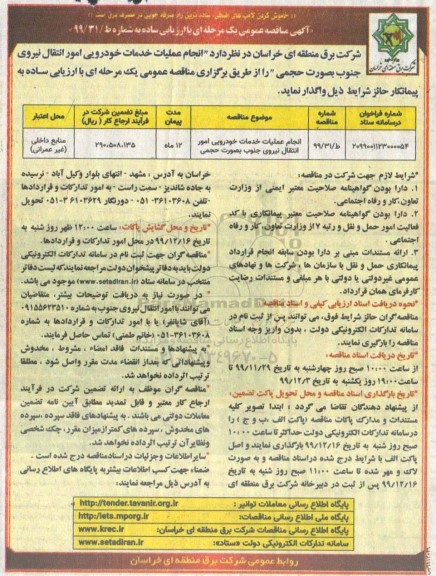 :: خاموش کردن لامپ های اضافی، ساده ترین راه صرفه جویی در مصرف برق است ::
"آگهی مناقصه عمومی یک مرحله ای با ارزیابی ساده به شماره ط/۹۹/۳۱"
شرکت برق منطقه ای خراسان
شرکت برق منطقه ای خراسان در نظر دارد "انجام عملیات خدمات خودرویی امور انتقال نیروی
جنوب بصورت حجمی" را از طریق برگزاری مناقصه عمومی یک مرحله ای با ارزیابی ساده به
پیمانکار حائز شرایط ذیل واگذار نماید.
شماره فراخوان درسامانه ستاد | شماره مناقصه | موضوع مناقصه | مدت پیمان | مبلغ تضمین شرکت در فرآیند ارجاع کار (ریال) | محل اعتبار
۲۰۹۹۰۰۱۱۲۳۰۰۰۰۵۴ | ط/۹۹/۳۱ | انجام عملیات خدمات خودرویی امور انتقال نیروی جنوب بصورت حجمی | ۱۲ ماه | ۲۹۰،۵۰۸،۱۳۵ | منابع داخلی (غیر عمرانی)
شرایط لازم جهت شرکت در مناقصه:
۱. دارا بودن گواهینامه صلاحیت معتبر ایمنی از وزارت
تعاون، کار و رفاه اجتماعی
۲. دارا بودن گواهینامه صلاحیت معتبر پیمانکاری با کد
فعالیت امور حمل و نقل و رتبه ۷ از وزارت تعاون، کار و رفاه
اجتماعی.
۳. ارائه مستندات مبنی بر دارا بودن سابقه انجام قرارداد
پیمانکاری حمل و نقل با سازمان ها، شرکت ها و نهادهای
عمومی غیردولتی یا دولتی با هر مبلغی و مستندات رضایت
کارفرمای همان قرارداد.
*نحوه دریافت اسناد ارزیابی کیفی و اسناد مناقصه:
مناقصه گران حائز شرایط فوق، می توانند پس از ثبت نام در
سامانه تدارکات الکترونیکی دولت، بدون واریز وجه اسناد
مناقصه را بارگیری نمایند.
*تاریخ دریافت اسناد مناقصه:
از ساعت ۱۰:۰۰ صبح روز چهارشنبه به تاریخ ۹۹/۱۱/۲۹ تا
ساعت ۱۹:۰۰ روز یکشنبه به تاریخ ۹۹/۱۲/۳
*تاریخ بارگذاری اسناد مناقصه و محل تحویل پاکت تضمین:
از پیشنهاد دهندگان تقاضا می گردد: ابتدا تصویر کلیه
مستندات و مدارک پاکات مناقصه (پاکت الف، ب و ج) را
درسامانه تدارکات الکترونیکی دولت حداکثر تا ساعت ۱۰:۰۰
صبح روز شنبه به تاریخ ۹۹/۱۲/۱۶ بارگذاری نمایند و اصل
پاکت الف با شرایط درج شده دراسناد مناقصه و به صورت
لاک و مهر شده تا ساعت ۱۱:۰۰ صبح روز شنبه به تاریخ
۹۹/۱۲/۱۶ پس از ثبت در دبیرخانه شرکت برق منطقه ای
خراسان به آدرس، مشهد - انتهای بلوار وکیل آباد - نرسیده
به جاده شاندیز - سمت راست - به امور تدارکات و قراردادها
تلفن: ۳۶۱۰۳۶۰۸-۰۵۱ دورنگار ۳۶۱۰۳۶۲۹-۰۵۱ تحویل
نمایند.
*تاریخ و محل گشایش پاکات: ساعت ۱۲:۰۰ ظهر روز شنبه به
تاریخ ۹۹/۱۲/۱۶ در محل امور تدارکات و قراردادها.
*مناقصه گران جهت ثبت نام در سامانه تدارکات الکترونیکی
دولت باید به دفاتر پیشخوان دولت مراجعه نمایند که لیست دفاتر
منتخب در سامانه ستاد (www.setadiran.ir) موجود می باشد.
در صورت نیاز به دریافت توضیحات بیشتر، متقاضیان
می توانند با امور انتقال نیروی جنوب به شماره ۰۹۱۵۵۶۲۳۵۱۰
(آقای شایانفر) یا با امور تدارکات و قراردادها به شماره
۳۶۱۰۳۶۰۸-۰۵۱ (خانم طعنی) تماس حاصل فرمایند.
*به پیشنهادها و مستندات فاقد امضاء، مشروط، مخدوش
و پیشنهاداتی که بعد از انقضاء مدت مقرر واصل شود، مطلقا
ترتیب اثر داده نخواهد شد.
*مناقصه گران موظف به ارائه تضمین شرکت در فرآیند
ارجاع کار معتبر و قابل تمدید مطابق آیین نامه تضمین
معاملات دولتی می باشند. به پیشنهادهای فاقد سپرده، سپرده
های مخدوش، سپرده های کمتر از میزان مقرر، چک شخصی
و نظایر آن ترتیب اثر داده نخواهد شد.
*سایر اطلاعات و جزئیات دراسناد مناقصه درج شده است.
ضمنا، جهت کسب اطلاعات بیشتر به پایگاه های اطلاع رسانی
به آدرس ذیل مراجعه نمایند.
پایگاه اطلاع رسانی معاملات توانیر: http://tender.tavanir.org.ir
پایگاه اطلاع رسانی مناقصات: http://iets.mporg.ir
پایگاه اطلاع رسانی مناقصات شرکت برق منطقه ای خراسان: www.krec.ir
سامانه تدارکات الکترونیکی دولت «ستاد»: www.setadiran.ir
روابط عمومی شرکت برق منطقه ای خراسان